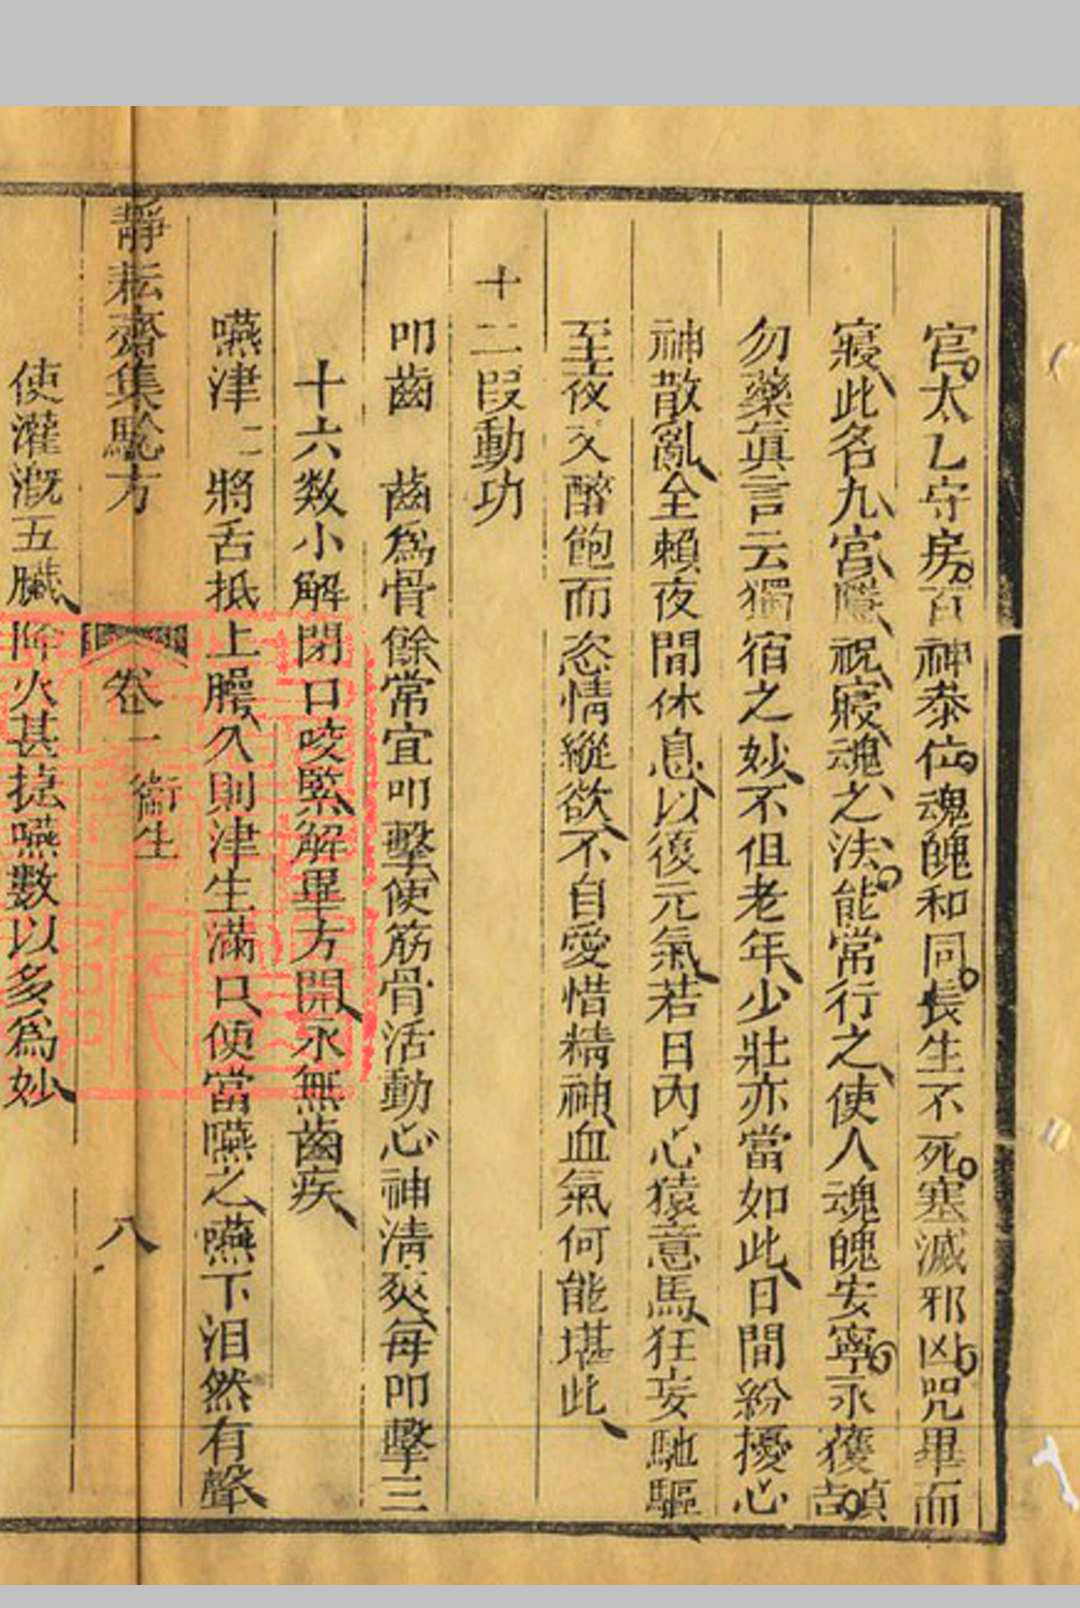 官太乙守房百神泰位魂魄和同長生不死塞滅邪凶咒畢而
寢此名九宮隱祝寢魂之法能常行之使人魂魄安寧永獲貞吉
勿藥真言云獨宿之妙不但老年少壯亦當如此日間紛擾心
神散亂全賴夜間休息以復元氣若日內心猿意馬狂妄馳驅
至夜又醉飽而恣情縱欲不自愛惜精神血氣何能堪此
十二段動功
叩齒 齒為骨餘常宜叩擊使筋骨活動心神清爽每叩擊三
十六數小解閉口咬緊解畢方開永無齒疾
嚥津二將舌抵上腭久則津生滿口便當嚥之嚥下汩然有聲
靜耘齋集騐方 卷一 衞生 八
使灌漑五臟降火甚捷嚥數以多為妙